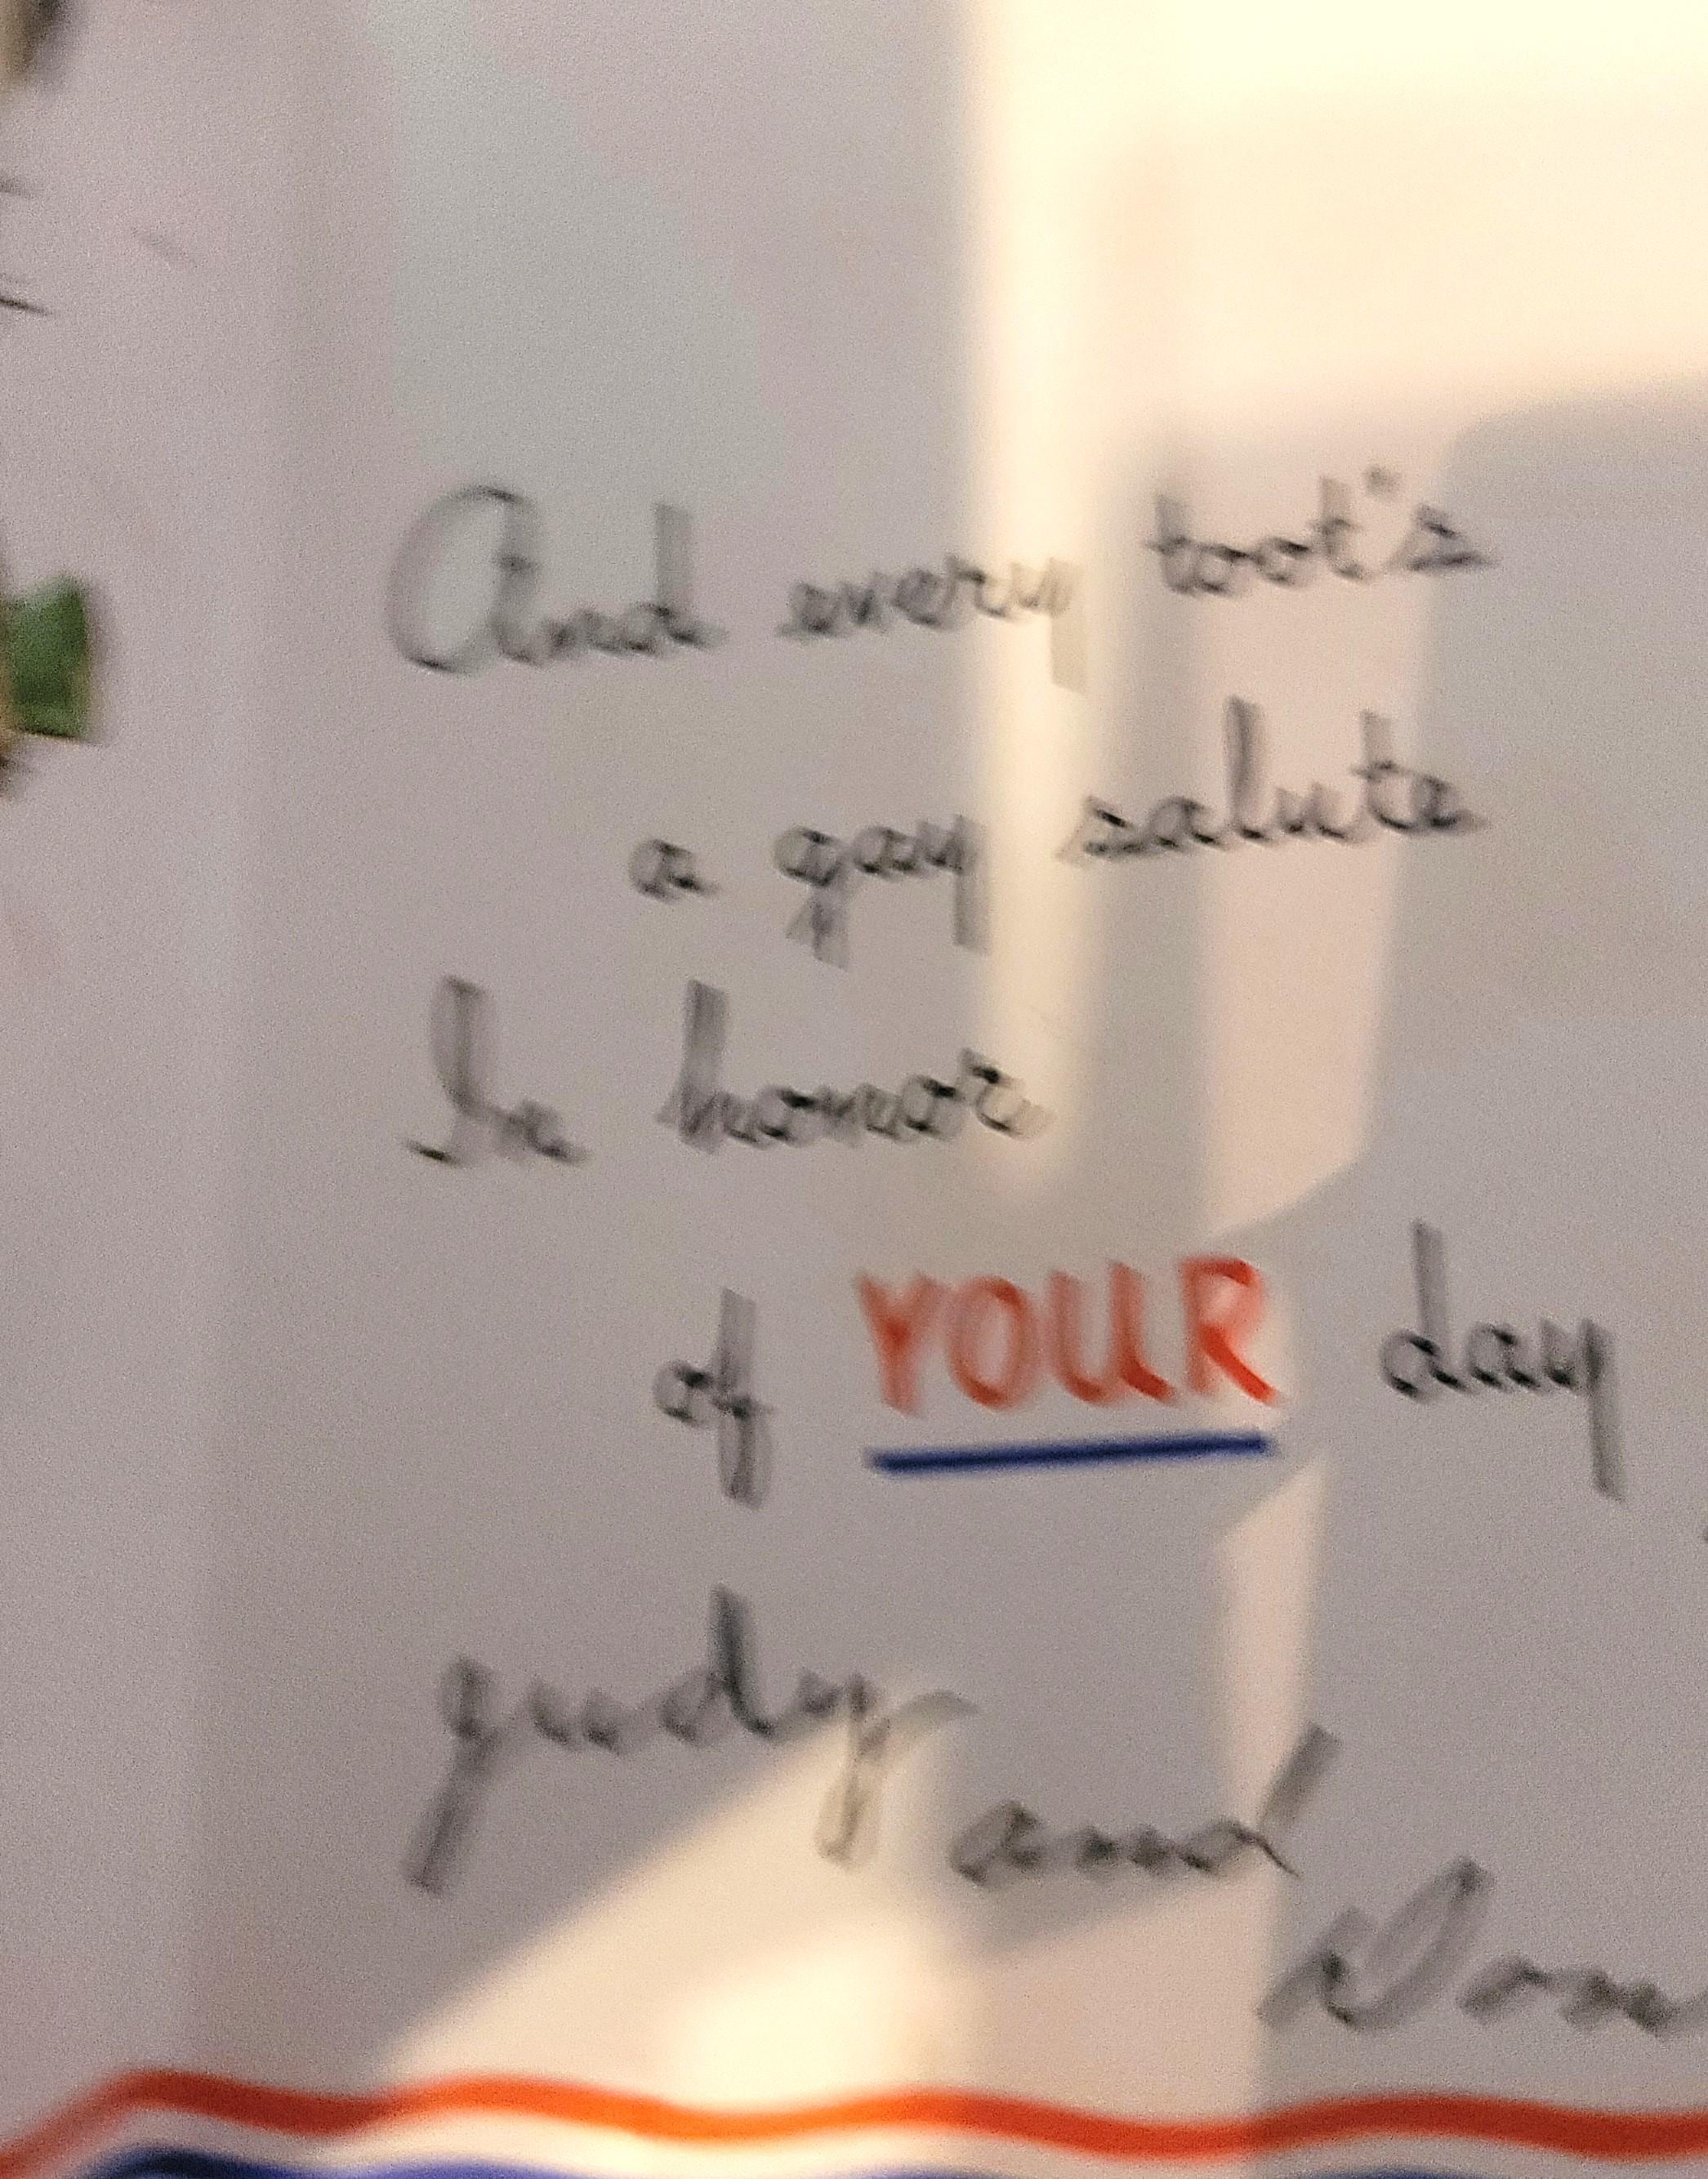 And every toot's
a gay salute
In honor
of YOUR day
Judy and
Don